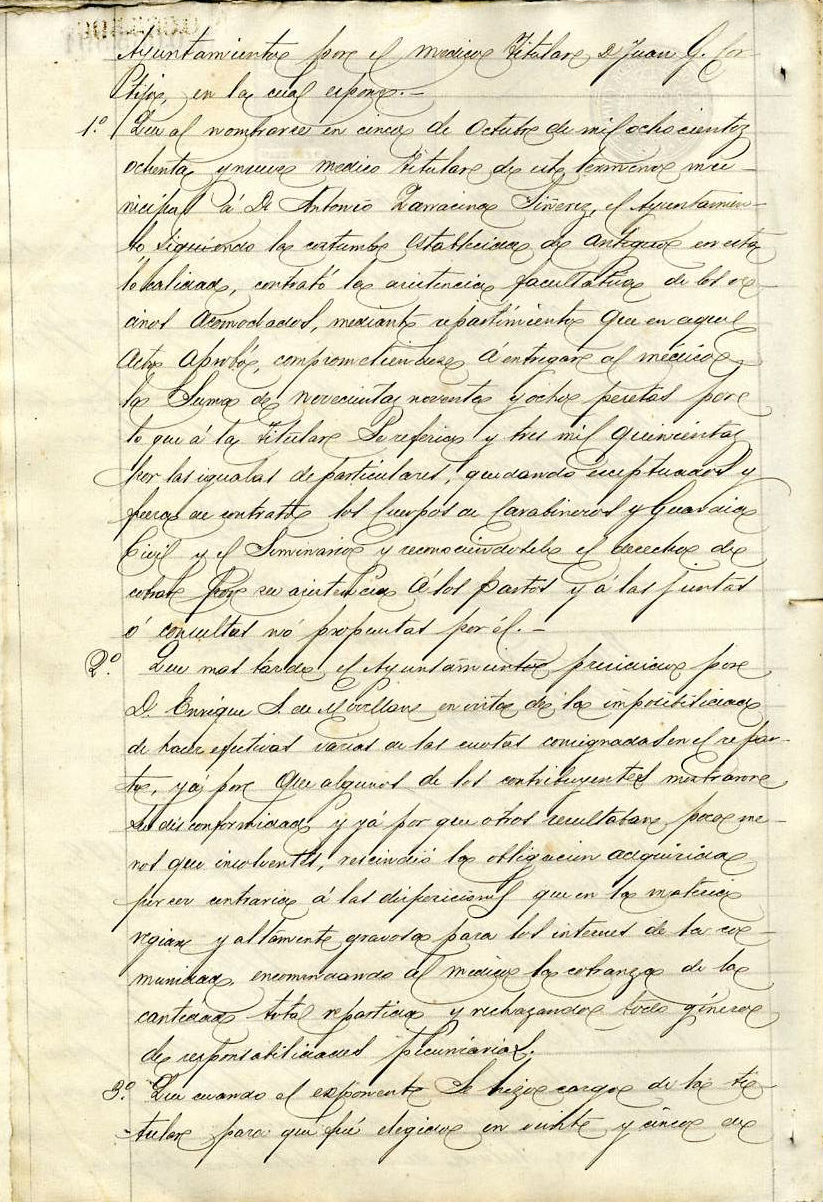 Ayuntamiento por el medico titular D Juan G. Cor-
tijo, en la cual espone.-
1.º Que al nombrarse en cinco de Octubre de mil ochocientos
ochenta y nueve medico titular de este termino mu-
nicipal á D. Antonio Zarracina Siñeriz, el Ayuntamien-
to siguiendo la costumbre establecida de antiguo en esta
localidad, contrató la asistencia facultativa de los ve-
cinos acomodados, mediante repartimiento que en aquel
acto aprobó, comprometiendose á entregar al médico
la suma de novecientas noventa y ocho pesetas por
lo que á la titular se referia y tres mil quinientas
por las igualas de particulares, quedando exceptuados y
fuera de contrato los Cuerpos de Carabineros y Guardia
Civil y el Seminario y reconociendosele el derecho de
cobrar por su asistencia á los partos y á las juntas
ó consultas nó propuestas por él.-
2.º Que mas tarde el Ayuntamiento presidido por
D. Enrique S. de Movellan en vista de la imposibilidad
de hacer efectivas varias de las cuotas consignadas en el repar-
to, yá por que algunos de los contribuyentes mostraron
su disconformidad y yá por que otros resultaban poco me-
nos que insolventes, rescindió la obligacion adquirida
por ser contraria á las disposiciones que en la materia
regian y altamente gravosa para los intereses de la co-
munidad, encomendando al medico la cobranza de la
cantidad total repartida y rechazando todo género
de responsabilidades pecuniarias.
3.º Que cuando el exponente se hizo cargo de la ti-
tular para que fué elegido en veinte y cinco de